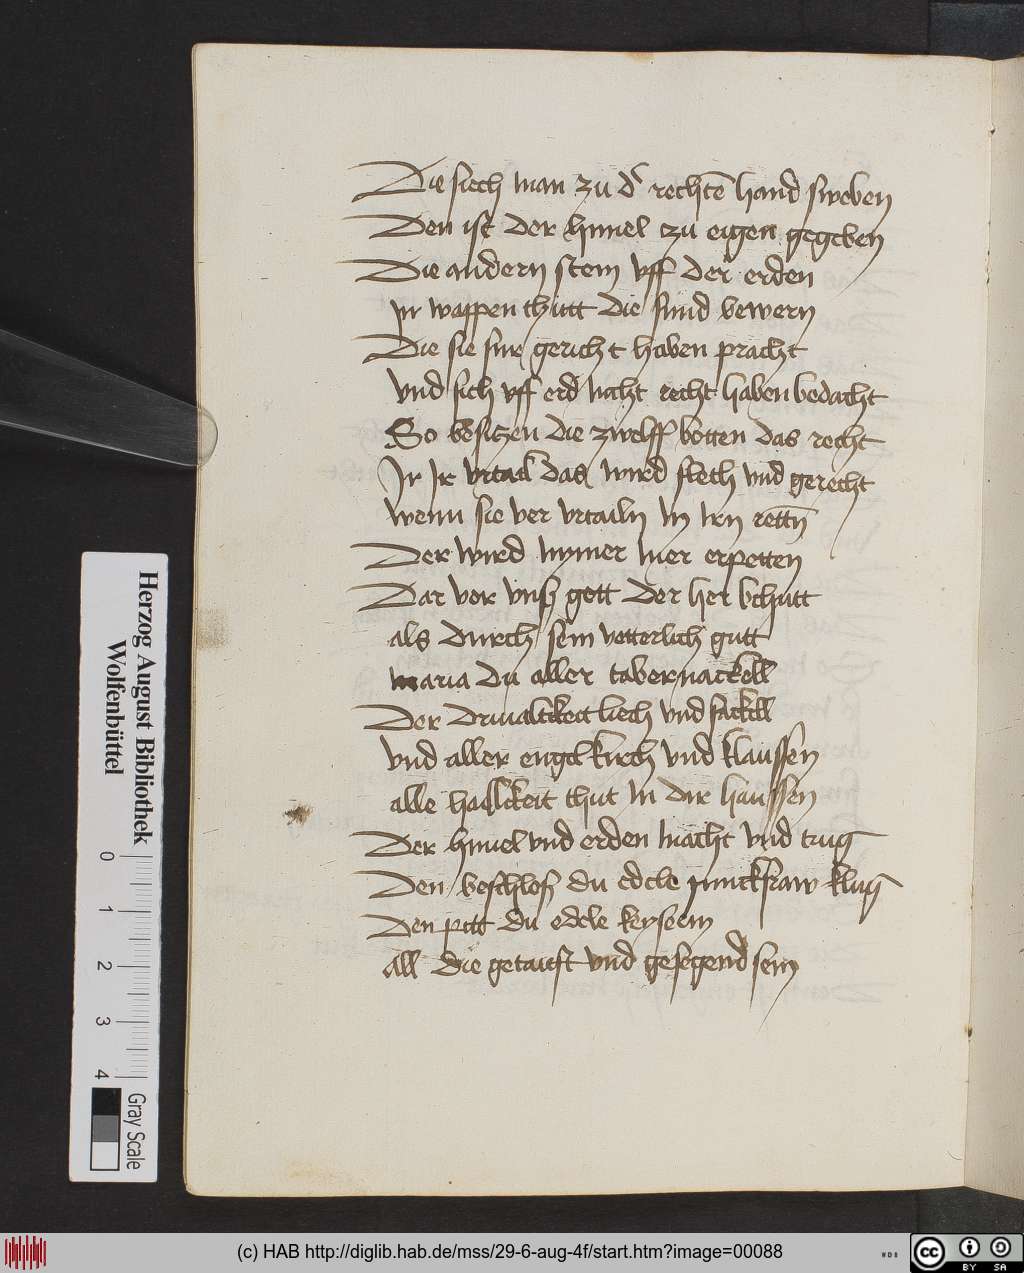 Die siech man zu dˢ rechtē hand sweben
Den ist der himel zu eigen gegeben
Die andern stem vff der erden
In wappen thutt die sund bewern
Die sie fur gericht haben pracht
Vnd sich vff erd nicht recht haben bedacht
So besiczen die zwelff botten das recht
Ir Ir vrtail das wird slech vnd gerecht
wenn sie ver vrtailn In Irn rettn̄
Der wird nymer mer erpetten
Dar vor vnß gott der her bchutt
als durch sein vetterlich gutt
maria du aller tabernackell
Der driualtikeit liech vnd fackell
Vnd aller engel kirch vnd klaussen
alle hailickeit thut In dir haussen
Der himel vnd erden macht vnd trug
Den beschloß du edele junckfraw klug
Den pitt du edele keyserin
all die getaufft vnd gesegend sein
Herzog August Bibliothek
Wolfenbüttel
0 1 2 3 4
Gray Scale
(c) HAB http://diglib.hab.de/mss/29-6-aug-4f/start.htm?image=00088
WDB
cc BY SA